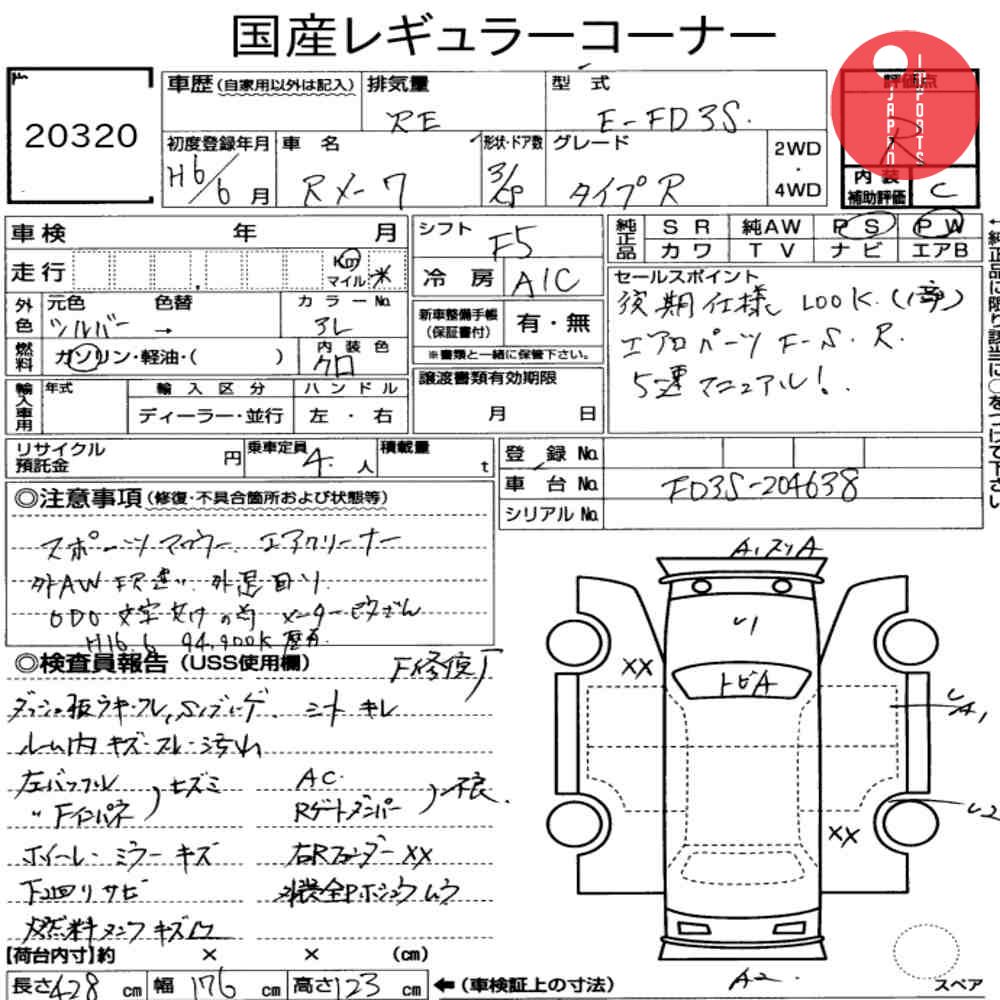 国産レギュラーコーナー
20320
車歴(自家用以外は記入) 排気量 型式
RE E-FD3S
評価点
R
JAPAN IMPORTS
初度登録年月 車名 形状・ドア数 グレード 2WD・4WD
H6/6月 RX-7 3/CP タイプR
内装補助評価 C
車検 年 月
シフト F5
純正品 SR 純AW PS PW
カワ TV ナビ エアB
走行 Km マイル *
冷房 A/C
セールスポイント
後期仕様 100K.
エアロパーツ F-S.R.
5速マニュアル!
外色 元色 色替 カラーNo.
シルバー → 3L
新車整備手帳(保証書付) 有・無
※書類と一緒に保管下さい。
燃料 ガソリン・軽油・( ) 内装色 クロ
譲渡書類有効期限
月 日
輸入車用 年式 輸入区分 ハンドル
ディーラー・並行 左・右
←純正品に限り該当に○をつけて下さい
リサイクル預託金 円 乗車定員 4.人 積載量 t
登録No.
車台No. FD3S-204638
シリアルNo.
◎注意事項(修復・不具合箇所および状態等)
スポーツマフラー エアクリーナー
外AW FR違い 外品
ODO メーター
H16.6 94,900K
◎検査員報告(USS使用欄) F修復
キズ・スレ・汚れ シートキレ
ルーム内キズ・スレ・汚れ
左バッフル AC
〃Fインパネ ヒズミ Rゲートダンパー 不良
ホイール・ミラーキズ 右Rフェンダーxx
下回りサビ
燃料タンクキズ凹
A1
U1
トビA
xx
xx
A1
U2
A2
スペア
【荷台内寸】約 × × (cm)
長さ428cm 幅176cm 高さ123cm ←(車検証上の寸法)